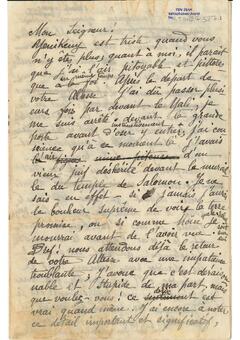 Mon Seigneur!
est triste quand vous
n'y êtes plus; quant à moi, il paraît
que j'ai l'air pitoyable et piteux
à la fois! Après le départ de
votre Altesse j'ai dû passer plusi-
eurs fois par devant le Yali; je
me suis arrêté devant la grande
porte avant d'oser y entrer; j'ai con-
science qu'à ce moment là j'avais
l'air d'un
vieux juif désherité devant la murail-
le du temple de Salomon. Je ne
sais en effet si jamais j'aurai
le bonheur suprême de voir la terre
promise, ou si comme Moïse je
mourrai avant de l'avoir vue!
Bref! nous attendons déjà le retour
de votre Altesse avec une impatience
troublante; j'avoue que c'est déraison-
nable et stupide de ma part, mais
que voulez-vous! ce sentiment est
vrai quand même. J'ai encore à noter
ce détail important et significatif,